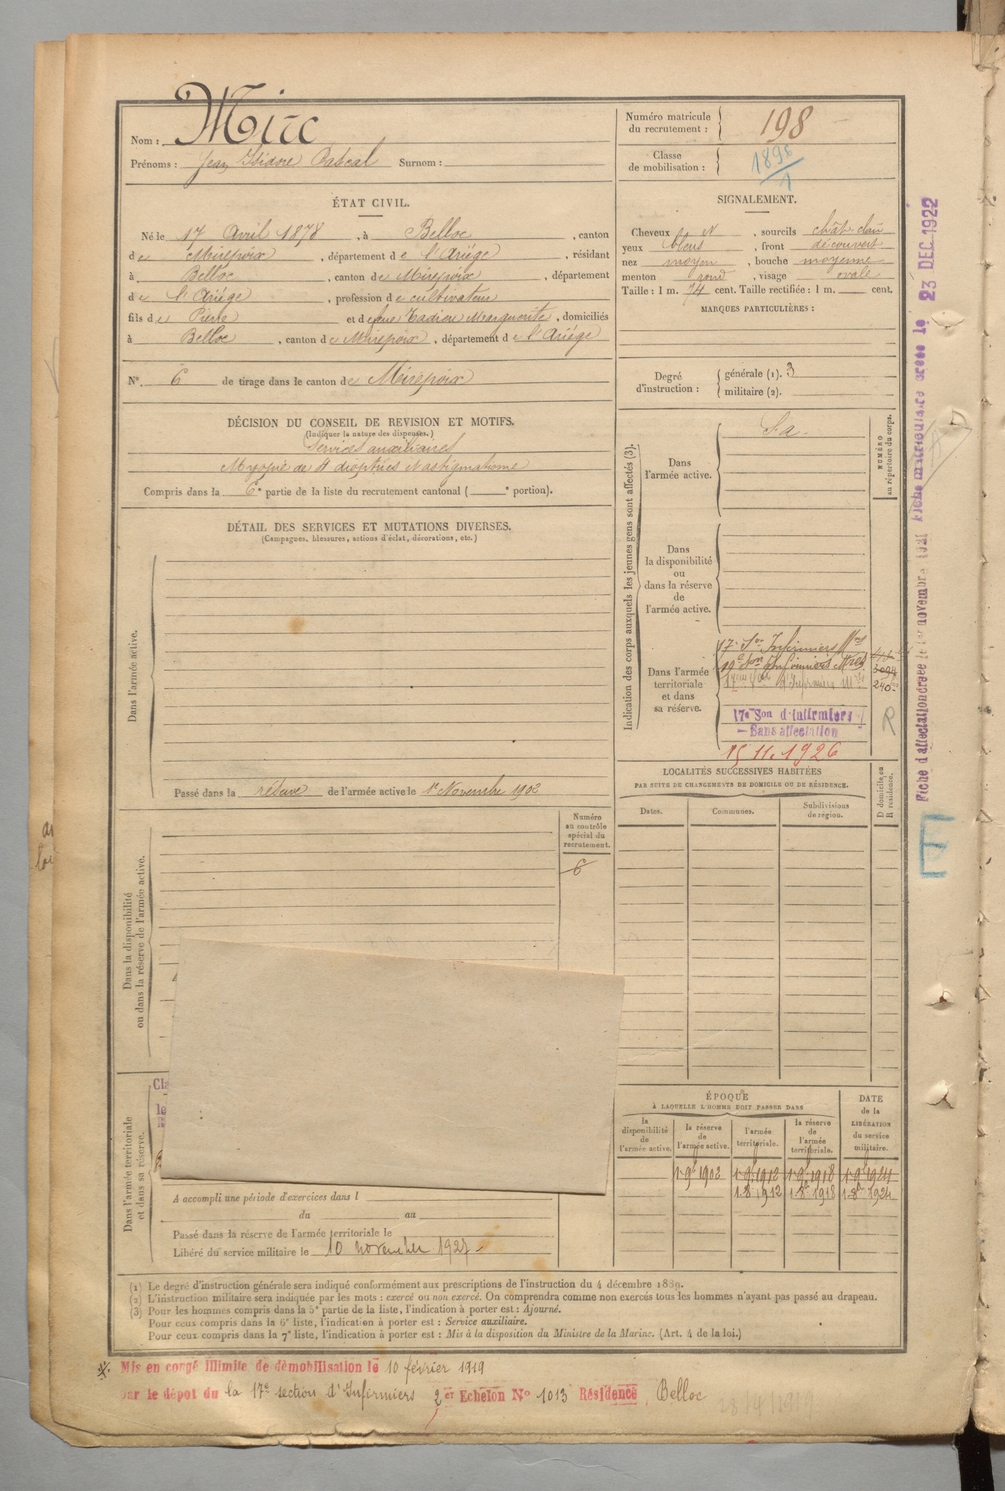 Nom : Mirc
Prénoms : Jean Isidore Pascal Surnom :
Numéro matricule du recrutement : 198
Classe de mobilisation :
ÉTAT CIVIL.
Né le 17 Avril 1878, à Belloc, canton
de Mirepoix, département de l'Ariége, résidant
à Belloc, canton de Mirepoix, département
de l'Ariége, profession de cultivateur
fils de Pierre et de Marguerite, domiciliés
à Belloc, canton de Mirepoix, département de l'Ariége
N° 6 de tirage dans le canton de Mirepoix
SIGNALEMENT.
Cheveux N, sourcils chât clair
yeux bleus, front découvert
nez moyen, bouche moyenne
menton rond, visage ovale
Taille : 1 m. 74 cent. Taille rectifiée : 1 m. cent.
MARQUES PARTICULIÈRES :
Degré d'instruction : générale (1). 3
militaire (2).
DÉCISION DU CONSEIL DE REVISION ET MOTIFS.
(Indiquer la nature des dispenses.)
Services auxiliaires
Myopie de 4 dioptries astigmatisme
Compris dans la 6e partie de la liste du recrutement cantonal ( e portion).
DÉTAIL DES SERVICES ET MUTATIONS DIVERSES.
(Campagnes, blessures, actions d'éclat, décorations, etc.)
Dans l'armée active.
Passé dans la réserve de l'armée active le 1er Novembre 1902
Indication des corps auxquels les jeunes gens sont affectés (3).
NUMÉRO au répertoire du corps.
Dans l'armée active.
S a
Dans la disponibilité ou dans la réserve de l'armée active.
Dans l'armée territoriale et dans sa réserve.
17e Son Infirmiers
17e Son d'Infirmiers
Sans affectation
15.11.1926
R
LOCALITÉS SUCCESSIVES HABITÉES
PAR SUITE DE CHANGEMENTS DE DOMICILE OU DE RÉSIDENCE.
Dates. Communes. Subdivisions de région. D domicile ou R résidence.
Dans la disponibilité ou dans la réserve de l'armée active.
Numéro au contrôle spécial du recrutement.
6
Dans l'armée territoriale et dans sa réserve.
A accompli une période d'exercices dans l
du au
Passé dans la réserve de l'armée territoriale le
Libéré du service militaire le 10 novembre 1927
ÉPOQUE
À LAQUELLE L'HOMME DOIT PASSER DANS
DATE de la LIBÉRATION du service militaire.
la disponibilité de l'armée active. la réserve de l'armée active. l'armée territoriale. la réserve de l'armée territoriale.
1.9.1902 1.9.1912 1.9.1918 1.9.1924
1.8.1912 1.8.1918 1.8.1924
(1) Le degré d'instruction générale sera indiqué conformément aux prescriptions de l'instruction du 4 décembre 1889.
(2) L'instruction militaire sera indiquée par les mots : exercé ou non exercé. On comprendra comme non exercés tous les hommes n'ayant pas passé au drapeau.
(3) Pour les hommes compris dans la 5e partie de la liste, l'indication à porter est : Ajourné.
Pour ceux compris dans la 6e liste, l'indication à porter est : Service auxiliaire.
Pour ceux compris dans la 7e liste, l'indication à porter est : Mis à la disposition du Ministre de la Marine. (Art. 4 de la loi.)
Mis en congé illimité de démobilisation le 10 février 1919
par le dépot du la 17e section d'Infirmiers 2 er Echelon N° 1013 Résidence Belloc
23 DEC 1922